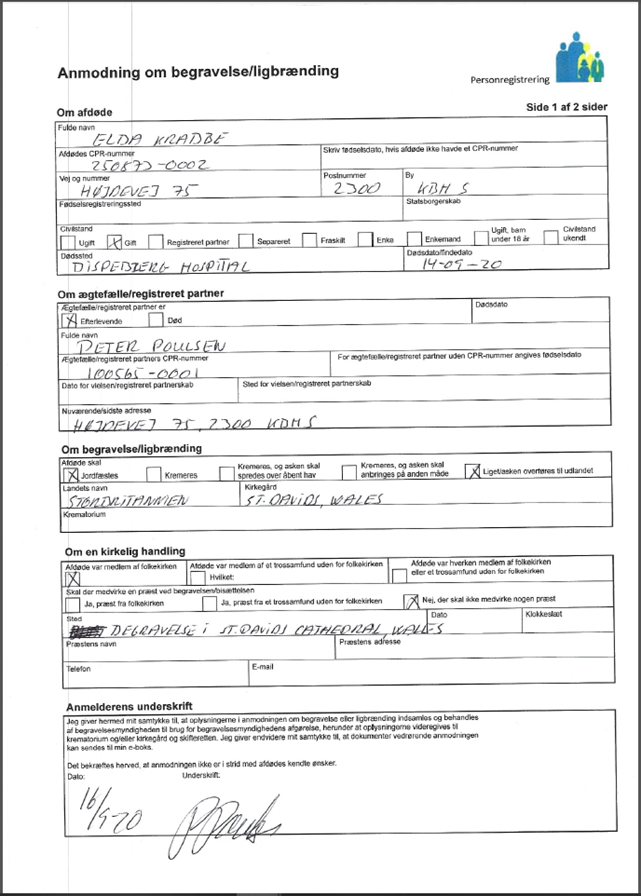 Anmodning om begravelse/ligbrænding
Personregistrering
Om afdøde
Side 1 af 2 sider
Fulde navn
ELDA KRADBE
Afdødes CPR-nummer
Skriv fødselsdato, hvis afdøde ikke havde et CPR-nummer
250873-0002
Vej og nummer
Postnummer
By
HØJDEVEJ 75
2300
KBH S
Fødselsregistreringssted
Statsborgerskab
Civilstand
Ugift
X Gift
Registreret partner
Separeret
Fraskilt
Enke
Enkemand
Ugift, barn under 18 år
Civilstand ukendt
Dødssted
Dødsdato/findedato
DISPEBJERG HOSPITAL
14-09-20
Om ægtefælle/registreret partner
Ægtefælle/registreret partner er
Dødsdato
X Efterlevende
Død
Fulde navn
PETER POULSEN
Ægtefælle/registreret partners CPR-nummer
For ægtefælle/registreret partner uden CPR-nummer angives fødselsdato
100565-0001
Dato for vielsen/registreret partnerskab
Sted for vielsen/registreret partnerskab
Nuværende/sidste adresse
HØJDEVEJ 75, 2300 KBH S
Om begravelse/ligbrænding
Afdøde skal
X Jordfæstes
Kremeres
Kremeres, og asken skal spredes over åbent hav
Kremeres, og asken skal anbringes på anden måde
X Liget/asken overføres til udlandet
Landets navn
Kirkegård
STORBRITANNIEN
ST. DAVIDS, WALES
Krematorium
Om en kirkelig handling
Afdøde var medlem af folkekirken
X
Afdøde var medlem af et trossamfund uden for folkekirken
Hvilket:
Afdøde var hverken medlem af folkekirken
eller et trossamfund uden for folkekirken
Skal der medvirke en præst ved begravelsen/bisættelsen
Ja, præst fra folkekirken
Ja, præst fra et trossamfund uden for folkekirken
X Nej, der skal ikke medvirke nogen præst
Sted
Dato
Klokkeslæt
BEGRAVELSE I ST. DAVIDS CATHEDRAL, WALES
Præstens navn
Præstens adresse
Telefon
E-mail
Anmelderens underskrift
Jeg giver hermed mit samtykke til, at oplysningerne i anmodningen om begravelse eller ligbrænding indsamles og behandles
af begravelsesmyndigheden til brug for begravelsesmyndighedens afgørelse, herunder at oplysningerne videregives til
krematorium og/eller kirkegård og skifteretten. Jeg giver endvidere mit samtykke til, at dokumenter vedrørende anmodningen
kan sendes til min e-boks.
Det bekræftes herved, at anmodningen ikke er i strid med afdødes kendte ønsker.
Dato:
Underskrift:
16/9-20